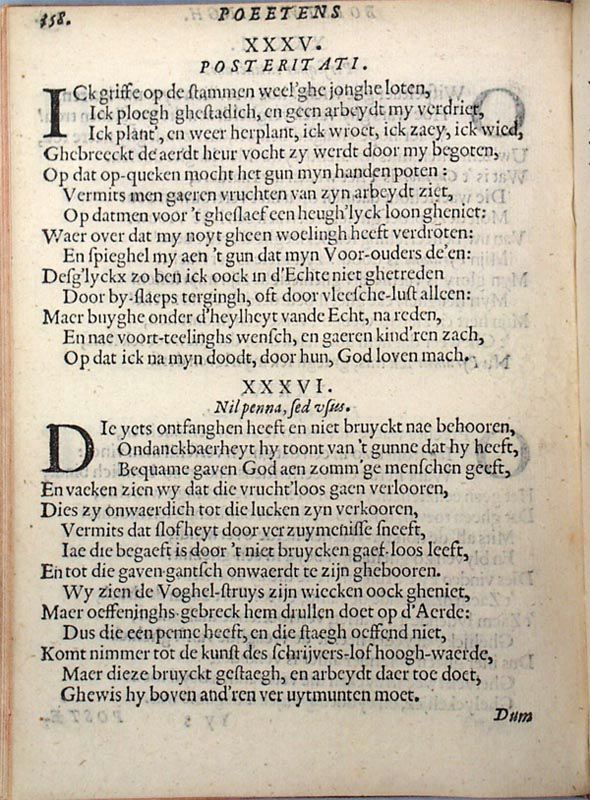 358. POEETENS
XXXV.
POSTERITATI.
ICk griffe op de stammen weel'ghe jonghe loten,
Ick ploegh ghestadich, en geen arbeydt my verdriet,
Ick plant', en weer herplant, ick wroet, ick zaey, ick wied,
Ghebreeckt de aerdt heur vocht zy werdt door my begoten,
Op dat op-queken mocht het gun myn handen poten:
Vermits men gaeren vruchten van zyn arbeydt ziet,
Op datmen voor 't gheslaef een heugh'lyck loon gheniet:
Waer over dat my noyt gheen woelingh heeft verdroten:
En spieghel my aen 't gun dat myn Voor-ouders de'en:
Desg'lyckx zo ben ick oock in d'Echte niet ghetreden
Door by-slaeps tergingh, oft door vleesche-lust alleen:
Maer buyghe onder d'heylheyt vande Echt, na reden,
En nae voort-teelinghs wensch, en gaeren kind'ren zach,
Op dat ick na myn doodt, door hun, God loven mach.
XXXVI.
Nil penna, sed vsus.
DIe yets ontfanghen heeft en niet bruyckt nae behooren,
Ondanckbaerheyt hy toont van 't gunne dat hy heeft,
Bequame gaven God aen zomm'ge menschen geeft,
En vaeken zien wy dat die vrucht'loos gaen verlooren,
Dies zy onwaerdich tot die lucken zyn verkooren,
Vermits dat slofheyt door verzuymenisse sneeft,
Iae die begaeft is door 't niet bruycken gaef-loos leeft,
En tot die gaven gantsch onwaerdt te zijn ghebooren.
Wy zien de Voghel-struys zijn wiecken oock gheniet,
Maer oeffeninghs gebreck hem drullen doet op d'Aerde:
Dus die een penne heeft, en die staegh oeffend niet,
Komt nimmer tot de kunst des schrijvers-lof hoogh-waerde,
Maer dieze bruyckt gestaegh, en arbeydt daer toe doet,
Ghewis hy boven and'ren ver uytmunten moet.
Dum